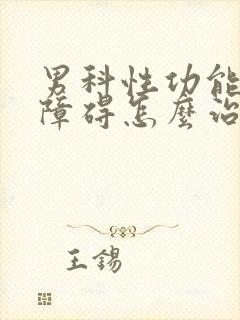 男科性功能
障碍怎麼治
王锡